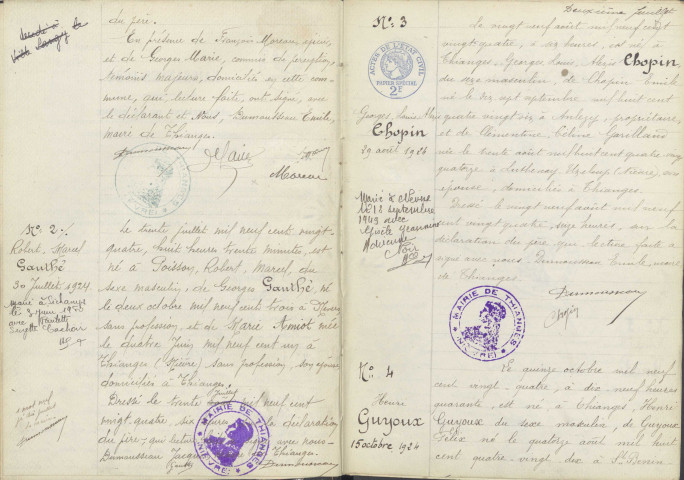 du père.
En présence de François Moreau, épicier,
et de Georges Marie, commis de perception,
témoins majeurs, domiciliés en cette com-
mune, qui lecture faite, ont signé, avec
le déclarant et Nous, Dumousseau Emile,
maire de Thianges.
Dumousseau
Moreau
MAIRIE
N° 2
Robert, Marcel
Gauthé
30 Juillet 1924
Marié à
le 3 juin 1950
avec
Le trente juillet mil neuf cent vingt-
quatre, huit heures trente minutes, est
né à Poisson, Robert, Marcel, du
sexe masculin, de Georges Gauthé, né
le deux octobre mil neuf cent trois à
sans profession, et de Marie Amiot née
le quatre Juin mil neuf cent un à
Thianges (Nièvre) sans profession, son épouse
domiciliés à Thianges.
Dressé le trente juillet mil neuf cent
vingt quatre, six heures la déclaration
du père, qui lecture avec nous
Dumousseau Thianges.
Gauthé
Dumousseau
MAIRIE DE THIANGES
(NIÈVRE)
Deuxième feuillet
N° 3
ACTES DE L'ÉTAT CIVIL
PAPIER SPÉCIAL
2F
Georges, Louis, Alexis
Chopin
29 août 1924
Marié à
le 18 septembre
1949 avec
Jeannine
Le vingt neuf août mil neuf cent
vingt quatre, à dix heures, est né à
Thianges, Georges, Louis, Alexis Chopin,
du sexe masculin, de Chopin Emile
né le dix sept septembre mil huit cent
quatre vingt six à Anlezy, propriétaire,
et de Clémentine, Céline
née le trente août mil huit cent quatre vingt
quatorze à (Nièvre) son
épouse, domiciliés à Thianges.
Dressé le vingt neuf août mil neuf
cent vingt quatre, seize heures, sur la
déclaration du père qui lecture faite a
signé avec nous, Dumousseau Emile, maire
de Thianges.
Dumousseau
Chopin
MAIRIE DE THIANGES
(NIÈVRE)
N° 4
Henri
Guyoux
15 octobre 1924
Le quinze octobre mil neuf
cent vingt-quatre, à dix-neuf heures
quarante, est né, à Thianges, Henri
Guyoux du sexe masculin, de Guyoux
Félix né le quatorze août mil huit
cent quatre-vingt-dix à St Benin